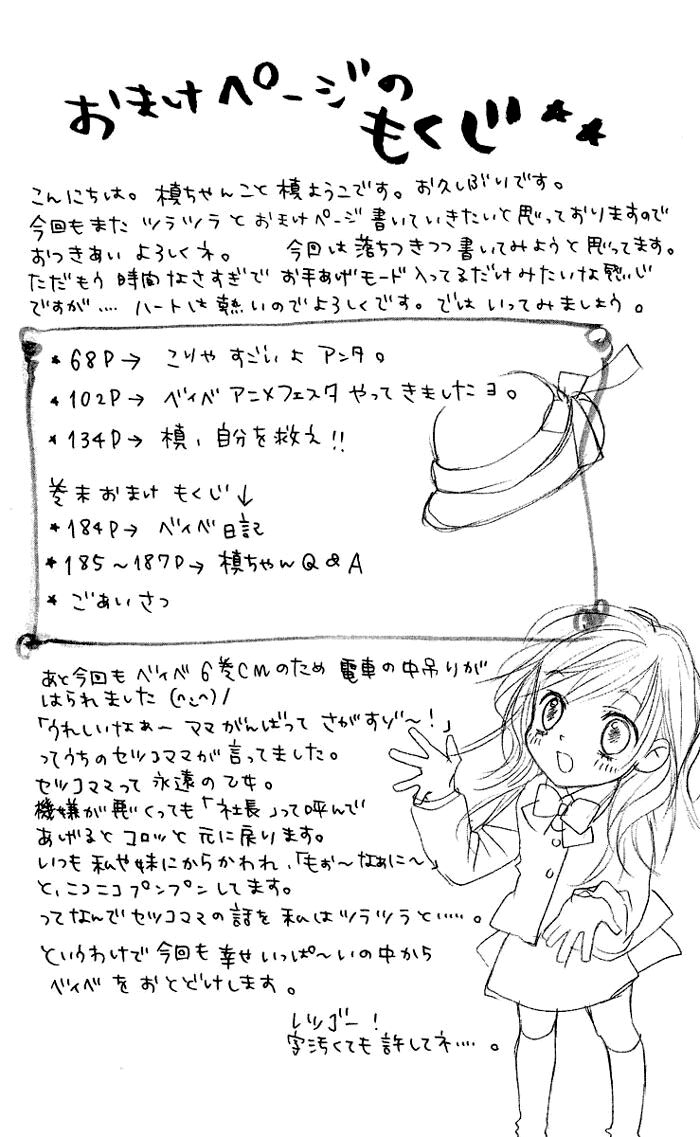 おまけページの
もくじ★★
こんにちは。槙ちゃんこと槙ようこです。お久しぶりです。
今回もまたツラツラとおまけページ書いていきたいと思っておりますので
おつきあいよろしくネ。 今回は落ちつきつつ書いてみようと思ってます。
ただもう時間なさすぎでお手あげモード入ってるだけみたいな感じ
ですが…ハートは熱いのでよろしくです。ではいってみましょう。
★68P→ こりゃすごいよアンタ。
★102P→ ベイベアニメフェスタやってきましたヨ。
★134P→ 槙、自分を救え!!
巻末おまけもくじ↓
★184P→ ベイベ日記
★185～187P→ 槙ちゃんQ&A
★ごあいさつ
あと今回もベイベ6巻CMのため電車の中吊りが
はられました(^ᴗ^)/
「うれしいなぁーママがんばってさがすゾ～!」
ってうちのセツコママが言ってました。
セツコママって永遠の乙女。
機嫌が悪くっても「社長」って呼んで
あげるとコロッと元に戻ります。
いつも私や妹にからかわれ、「もぉ～なぁに～」
と、ニコニコプンプンしてます。
ってなんでセツコママの話を私はツラツラと……。
というわけで今回も幸せいっぱ～いの中から
ベイベをおとどけします。
レッゴー!
字汚くても許してネ…。